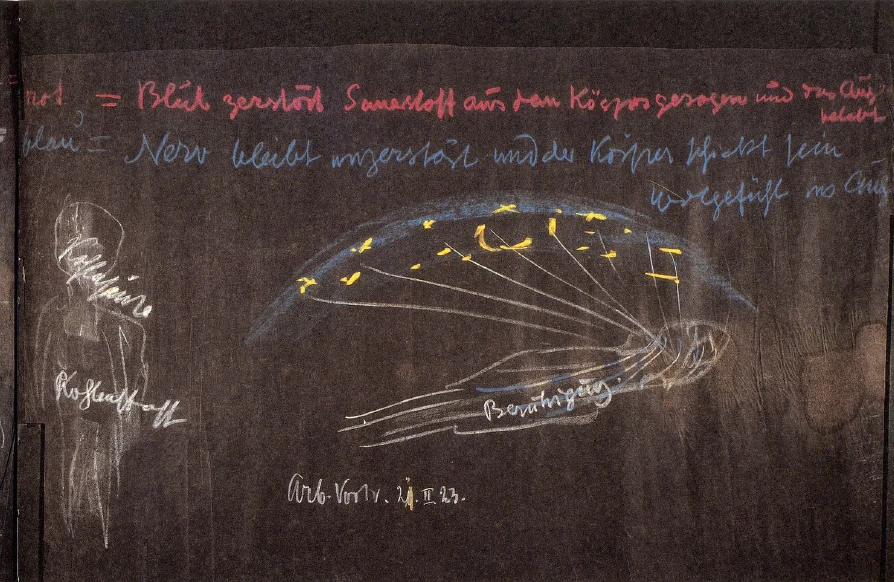 rot = Blut zerstört Sauerstoff aus dem Körper gesogen und das Aug
belebt
blau = Nerv bleibt unzerstört und der Körper schickt sein
Wolgefühl ins Aug
Kohlensäure
Kohlenstoff
Beruhigung.
Arb-Vortr. 21.II 23.